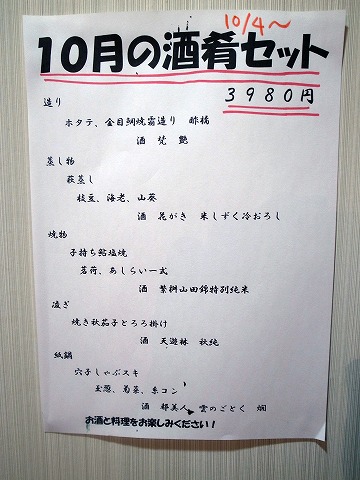 10/4～
10月の酒肴セット
3980円
造り
ホタテ、金目鯛焼霜造り 酢橘
酒 梵 艶
蒸し物
萩蒸し
枝豆、海老、山葵
酒 花がき 米しずく冷おろし
焼物
子持ち鮎塩焼
茗荷、あしらい一式
酒 繁桝山田錦特別純米
凌ぎ
焼き秋茄子とろろ掛け
酒 天遊林 秋純
紙鍋
穴子しゃぶスキ
玉葱、菊菜、糸コン
酒 都美人 雲のごとく 燗
お酒と料理をお楽しみください！